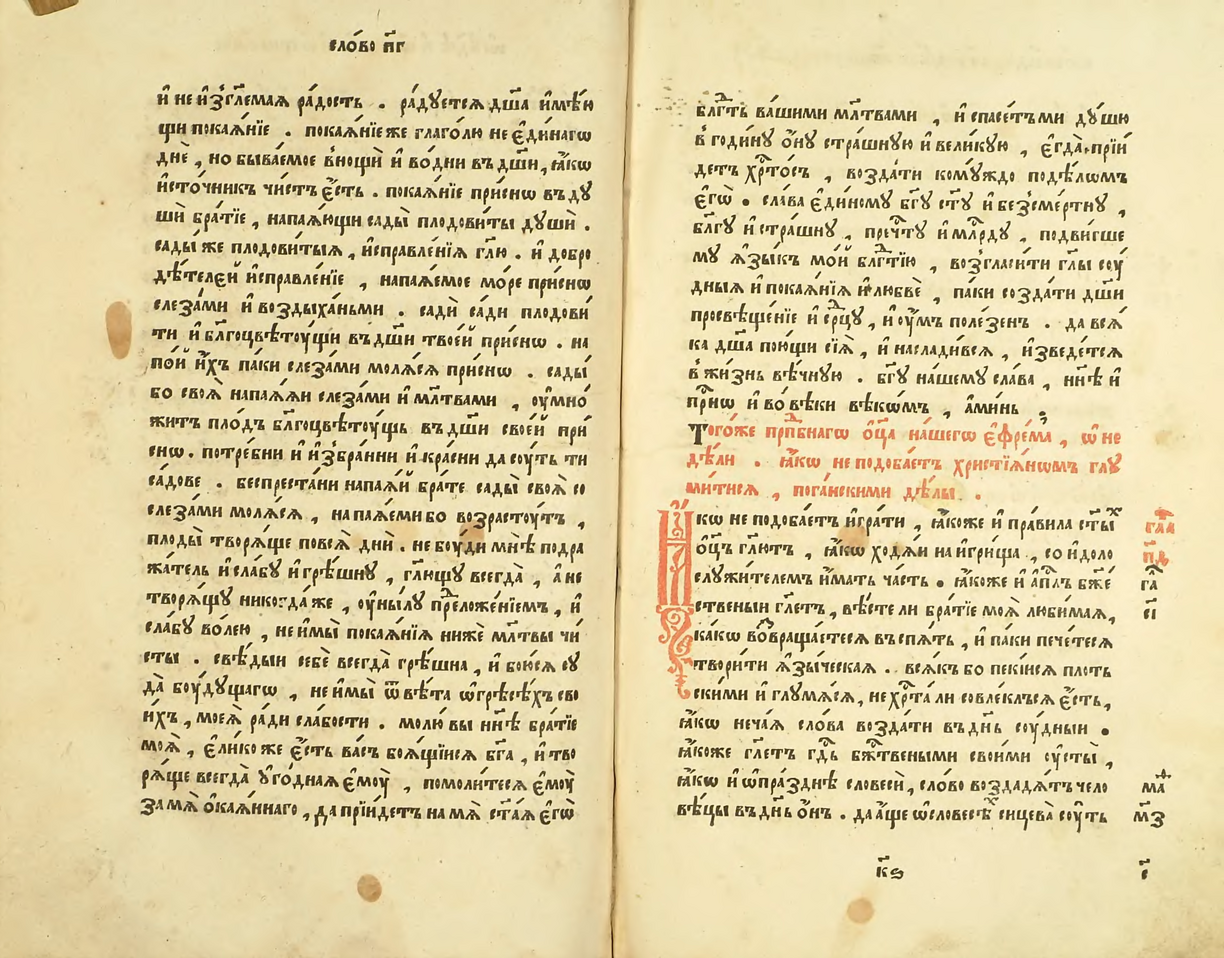 сло́во п҃г
и҆ не и҆з̾гл҃емаѧ ра́дость . ра́дꙋетсѧ дш҃а и҆мѣ́ю
щи покаѧ́нїе . покаѧ́нїе же глаго́лю не є҆ди́нагѡ
днѐ , но быва́емое в̾нощѝ и҆ во́дни въ дш҃и , ꙗ҆́кѡ
и҆сто́чникъ чи́стъ є҆́сть . покаѧ́нїе при́снѡ въ дꙋ
шѝ бра́тїе , напаѧ́ющи сады̀ плодови́ты дꙋ́ши .
сады́ же плодови́тыѧ , и҆справле́нїѧ гл҃ю . и҆ добро
дѣ́телей и҆справле́нїе , напаѧ́емое мо́ре при́снѡ
слеза́ми и҆ воздыха́ньми . садѝ са́ди плодови́
ти и҆ бл҃гоцвѣтоу́щи въ дш҃и твое́й при́снѡ . на
по́й и҆́хъ па́ки слеза́ми молѧ́сѧ при́снѡ . сады́
бо своѧ̀ напаѧ́ѧи слеза́ми и҆ мл҃твами , оу҆мно́
житъ пло́дъ бл҃гоцвѣтоу́щь въ дш҃и свое́й при́
снѡ . потре́бни и҆ и҆з̾бра́нни и҆ кра́сни да соу́ть ти
са́дове . беспреста́ни напаѧ́й бра́те сады̀ своѧ̀ со
слеза́ми молѧ́сѧ , напаѧ́еми бо возрастоу́тъ ,
плоды̀ творѧ́ще по всѧ̀ дни̑ . не боу́ди мнѣ̀ подра
жа́тель и҆ сла́бꙋ и҆ грѣ́шнꙋ , гл҃ющꙋ всегда̀ , а҆ не
творѧ́щꙋ никогда́же , оу҆ны́лꙋ преложе́нїемъ , и҆
сла́бꙋ во́лею , не и҆мы́й покаѧ́нїѧ нижѐ мл҃твы чи́
сты . свѣ́дыи себѐ всегда̀ грѣ́шна , и҆ бою́сѧ сꙋ
да̀ боу́дꙋщагѡ , не и҆мы̀ ѿвѣ́та ѡ҆ грѣсѣ́хъ сво
и҆́хъ , моеѧ̀ ра́ди сла́бости . молю́ вы нн҃ѣ бра́тїе
моѧ̀ , є҆ли́ко же є҆́сть ва́съ боѧ́щїисѧ бг҃а , и҆ тво
рѧ́ще всегда̀ ᲂу҆го́днаѧ є҆моу̀ , помоли́тесѧ є҆моу̀
за мѧ̀ ѻ҆каѧ́ннаго , да прїи́детъ на мѧ̀ ст҃а́ѧ є҆гѡ̀
бл҃гть ва́шими мл҃твами , и҆ спасе́тъ ми дꙋ́шю
в̾ годи́нꙋ ѻ҆́нꙋ стра́шнꙋю и҆ вели́кꙋю , є҆гда̀ прїи́
детъ хр҃то́съ , возда́ти комꙋ́ждо по дѣ́лѡмъ
є҆гѡ̀ . сла́ва є҆ди́номꙋ бг҃ꙋ ст҃ꙋ и҆ без̾сме́ртнꙋ ,
бл҃гꙋ и҆ стра́шнꙋ , пре҃чтꙋ и҆ мл҃рдꙋ , подви́гше
мꙋ ѧ҆зы́къ мо́й бл҃гтїю , возгласи́ти гл҃ы соу́
дныѧ и҆ покаѧ́нїѧ и҆ любвѐ , па́ки созда́ти дш҃и
просвѣще́нїе и҆ ср҃цꙋ , и҆ оу҆́мъ поле́зенъ . да всѧ́
ка дш҃а пою́щи сїѧ̀ , и҆ наслади́всѧ , и҆зведе́тсѧ
в̾ жи́знь вѣ́чнꙋю . бг҃ꙋ на́шемꙋ сла́ва , нн҃ѣ и҆
пр҃нѡ и҆ во́вѣки вѣкѡ́мъ , а҆ми́нь .
Того́же прп҃бнагѡ ѻ҆ц҃а на́шегѡ є҆фре́ма , ѡ҆ не
дѣ́ли . ꙗ҆́кѡ не подоба́етъ христїѧ́нѡмъ глꙋ
ми́тисѧ , пога́нскими дѣ́лы .
Ꙗ҆́кѡ не подоба́етъ и҆гра́ти , ꙗ҆́коже и҆ пра́вила ст҃ы́х
ѻ҆ц҃ъ гл҃ютъ , ꙗ҆́кѡ ходѧ́й на и҆гри́ща , со и҆́доло
слꙋжи́телемъ и҆́мать ча́сть . ꙗ҆́коже и҆ а҆п҃лъ бж҃е
ственыи гл҃етъ , вѣ́сте ли бра́тїе моѧ̀ люби́маѧ ,
ка́кѡ во̾враща́етесѧ въ спѧ́ть , и҆ па́ки пече́тесѧ
твори́ти ѧ҆зы́ческаѧ . всѧ́къ бо пекі́исѧ пло́ть
скими и҆ глꙋмѧ́сѧ , не хр҃та́ ли совле́клъсѧ є҆́сть ,
ꙗ҆́кѡ неча́ѧ сло́ва возда́ти въ дн҃ь соу́дныи .
ꙗ҆́коже гл҃етъ гд҃ь бж҃твеными свои́ми оу҆сты̀ ,
ꙗ҆́кѡ и҆ ѡ҆ пра́зднѣ словесѝ , сло́во воздадѧ́тъ чело
вѣ́цы въ дн҃ь ѻ҆́нъ . да а҆́ще ѡ҆ словесѣ́х си́цева соу́ть
гл҃а
п҃д
га҃
є҃і
ма
м҃з
к҃ѕ